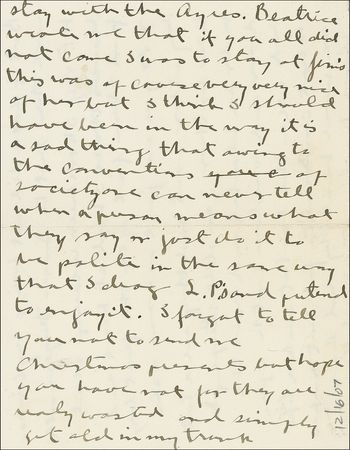 stay with the Ayres. Beatrice
wrote me that if you all did
not come I was to stay at Jim's
this was of course very very nice
of her but I think I should
have been in the way it is
a sad thing that owing to
the conventions of
society one can never tell
when a person means what
they say or just do it to
be polite in the same way
that I drag and pretend
to enjoy it. I forgot to tell
you not to send me
Christmas presents but hope
you have not for they are
really wasted and simply
get old in my trunk
12/16/07